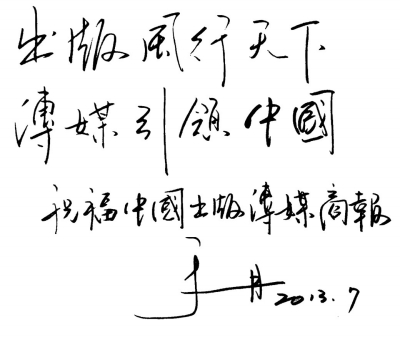 出版風行天下
傳媒引領中國
祝福中國出版傳媒商報
于丹 2013.7